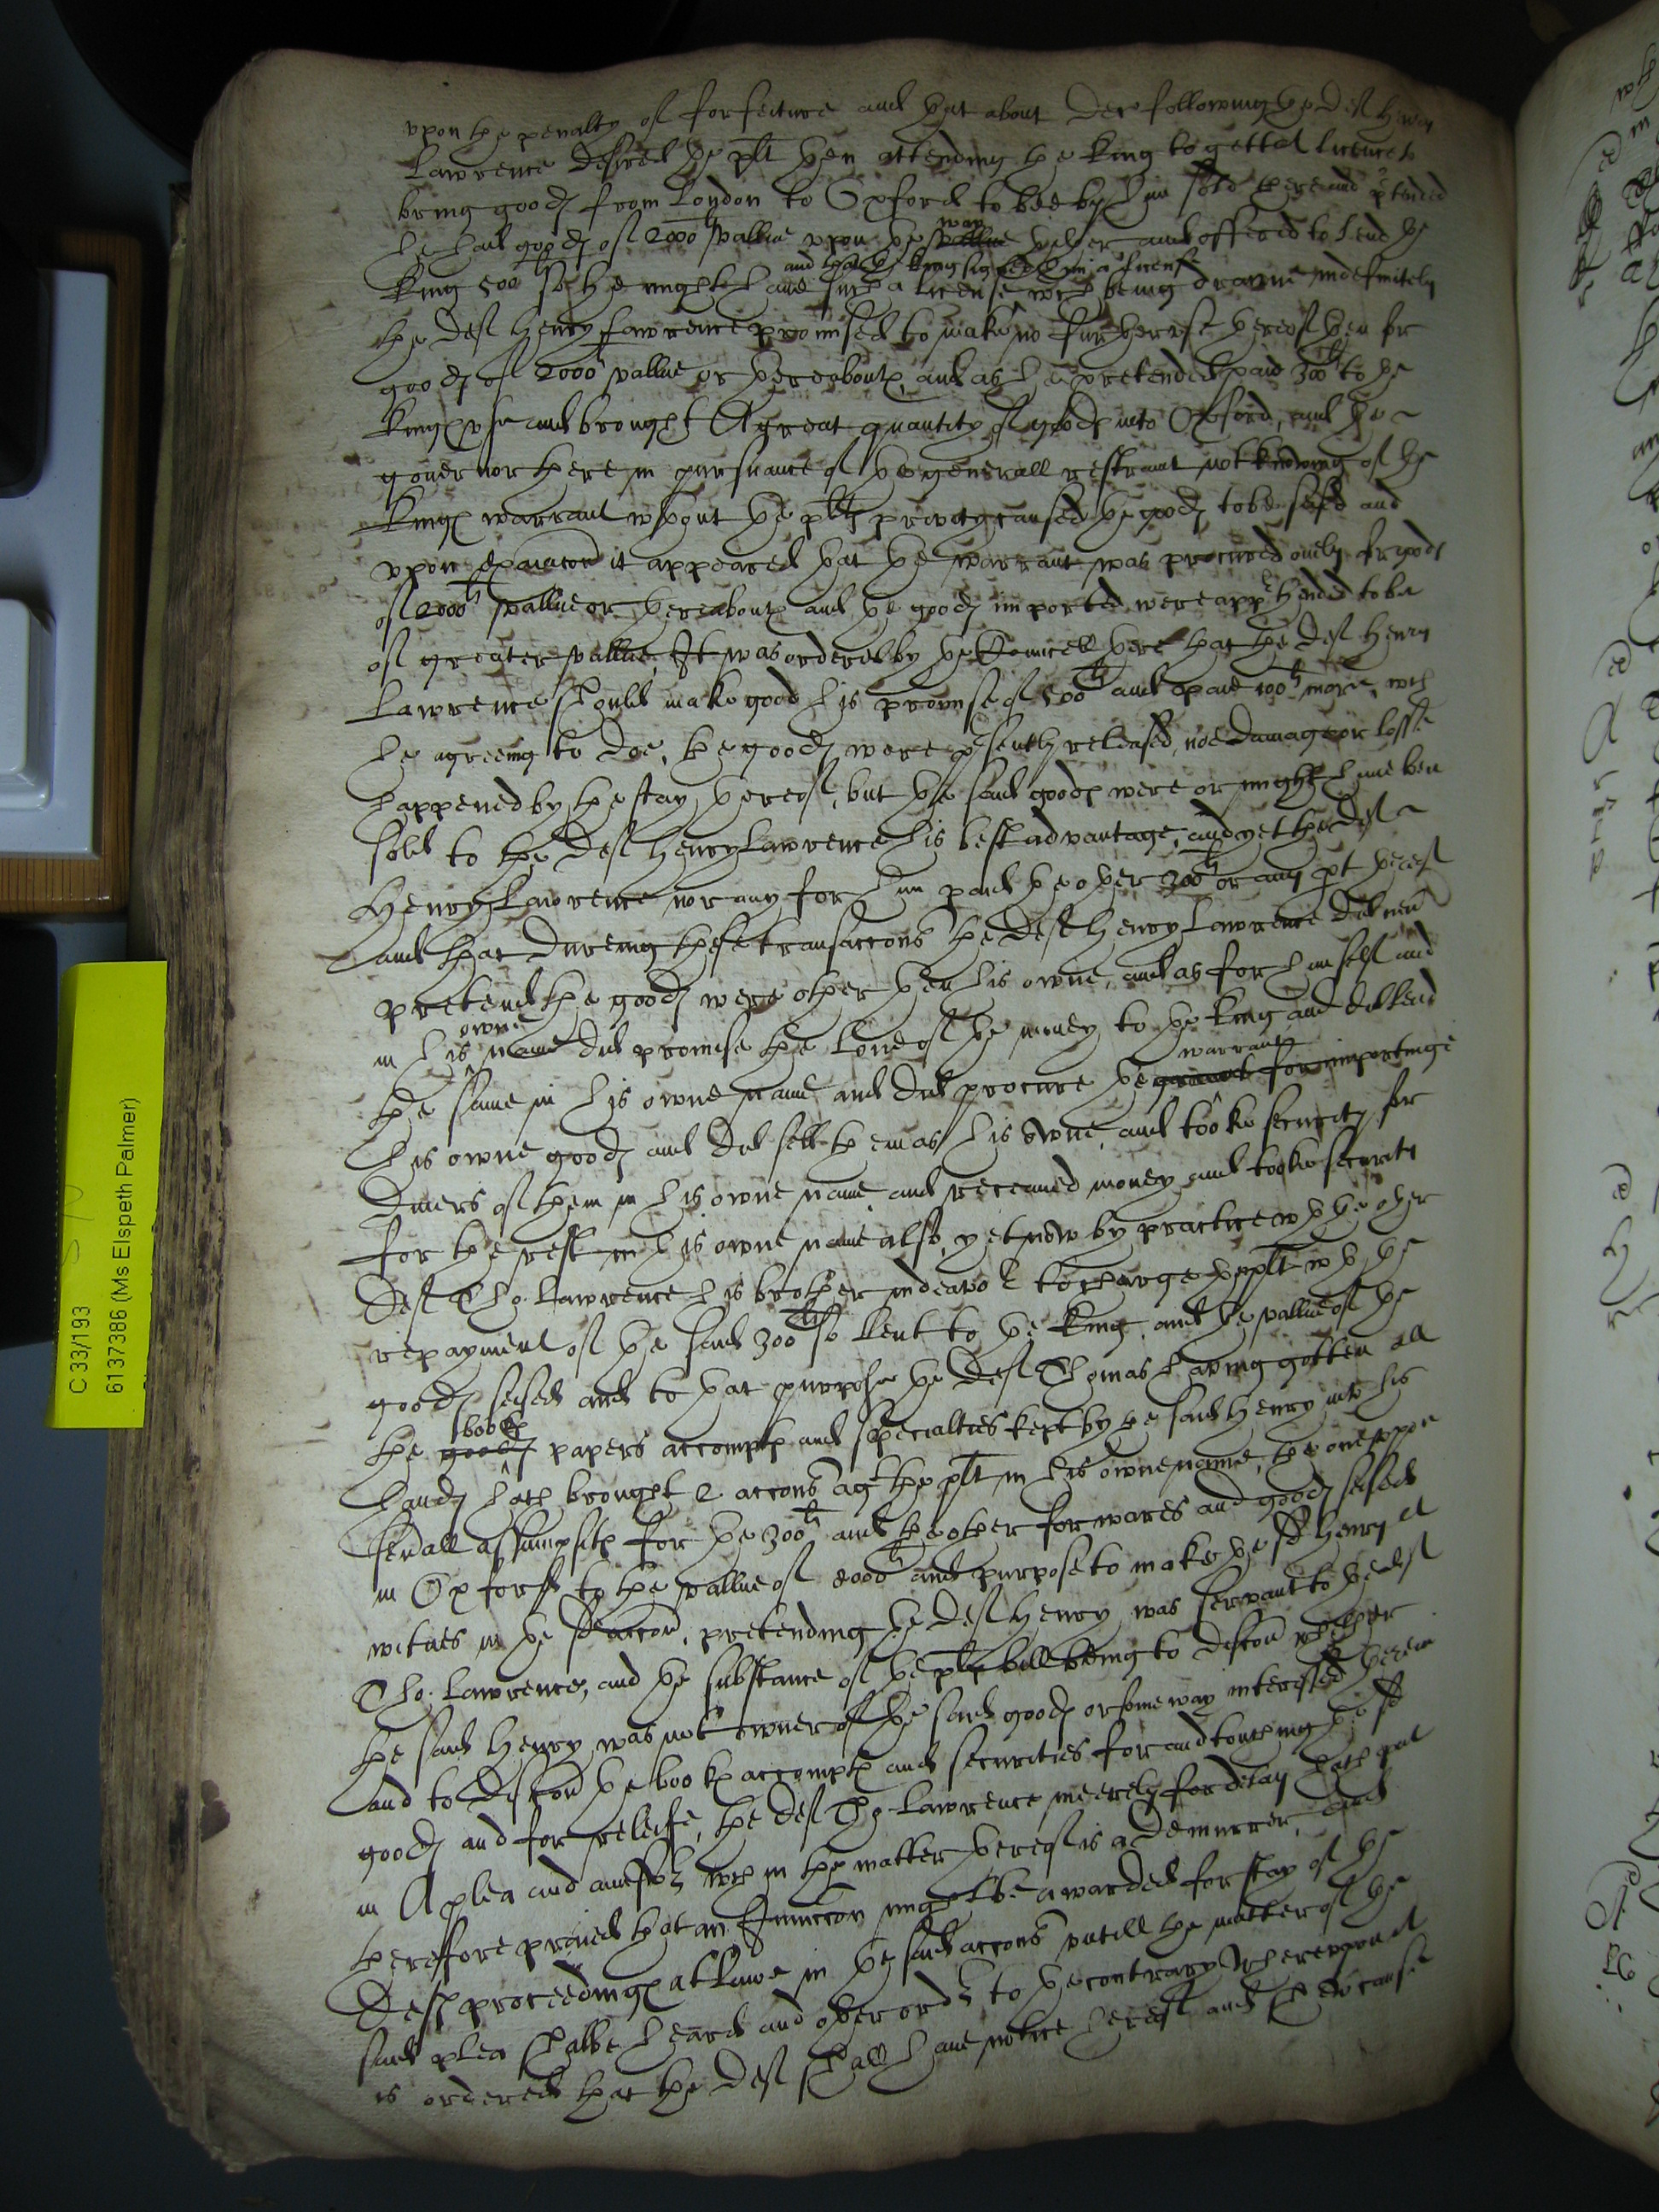 upon the penalty of forfeiture and that about Decr following the Deft Henry
Lawrence desired the plt then attending the King to gett a licence to
bring goods from London to Oxford to bee by him sold there and ptended
he had goods of 2000li vallue upon the way thither and offered to lend the
King 500li so he might have such a license and that the King signed him a licens wch being drawne indefinitely
the Deft Henry Lawrence promised to make no further use thereof then for
goods of 2000li vallue or thereabouts, and as he pretended paid 300li to the
Kings use and brought A great quantity of goods into Oxford, and the
governor there in pursuance of the generall restraint not knowing of the
Kings warrant wthout the plts privity caused the goods to be seised and
upon exaiacon it appeared that the warrant was procured onely for goods
of 2000li vallue or thereabouts and the goods imported were apprhended to be
of greater vallue, It was ordered by the Councell there that the Deft Henry
Lawrence should make good his promise of 500li and paie 100li more, wch
he agreeing to doe, the goods were psently released, noe damage or losse
happened by the stay thereof, but the said goods were or might have ben
sold to the Deft Henry Lawrence his best advantage, and yet the Deft
Henry Lawrence nor any for him paid the other 300li or any pt thereof
and that dureing these transaccons the Deft Henry Lawrence did nevr
pretend the goods were other then his owne, and as for himself and
in his owne name did promise the lone of the money to the King and did lend
the same in his owne name and did procure the warrant for importinge
his owne goods and did sell them as his owne, and tooke security for
Divers of them in his owne name and received money and tooke security
for the rest in his owne name also, yet now by practice wth the other
Deft Tho. Lawrence his brother indeavor to charge the plt wth the
repayment of the said 300li so lent to the King, and the vallue of the
goods seised and to that purpose the Deft Thomas having gotten all
the books papers accompts and specialties kept by the said Henry into his
hands hath brought 2 accons agt the plt in his owne name, the one uppon
severall assumpsits for the 300li and the other for wares and goods seised
in Oxford to the vallue of 8000li and purpose to make the sd Henry a
witnes in the sd accon, pretending the Deft Henry was servant to the Deft
Tho. Lawrence, and the substance of the plts bill being to discov whether
the said Henry was not owner of the said goods or some way interessed therein
and to discov the books accompts and securities for and touching the sd
goods and for releife, the Deft Tho. Lawrence meerely for delay hath put
in A plea and answer wch in the matter thereof is a Demurrer, And
therefore praied that an Iniuccon might be awarded for stay of the
Defts proceedings at lawe in the said accons untill the matter of the
said plea shalbe heard and other order to the contrary Whereupon it
is ordered that the Deft shall have notice hereof and shew cause
C 33/193
6137386 (Ms Elspeth Palmer)